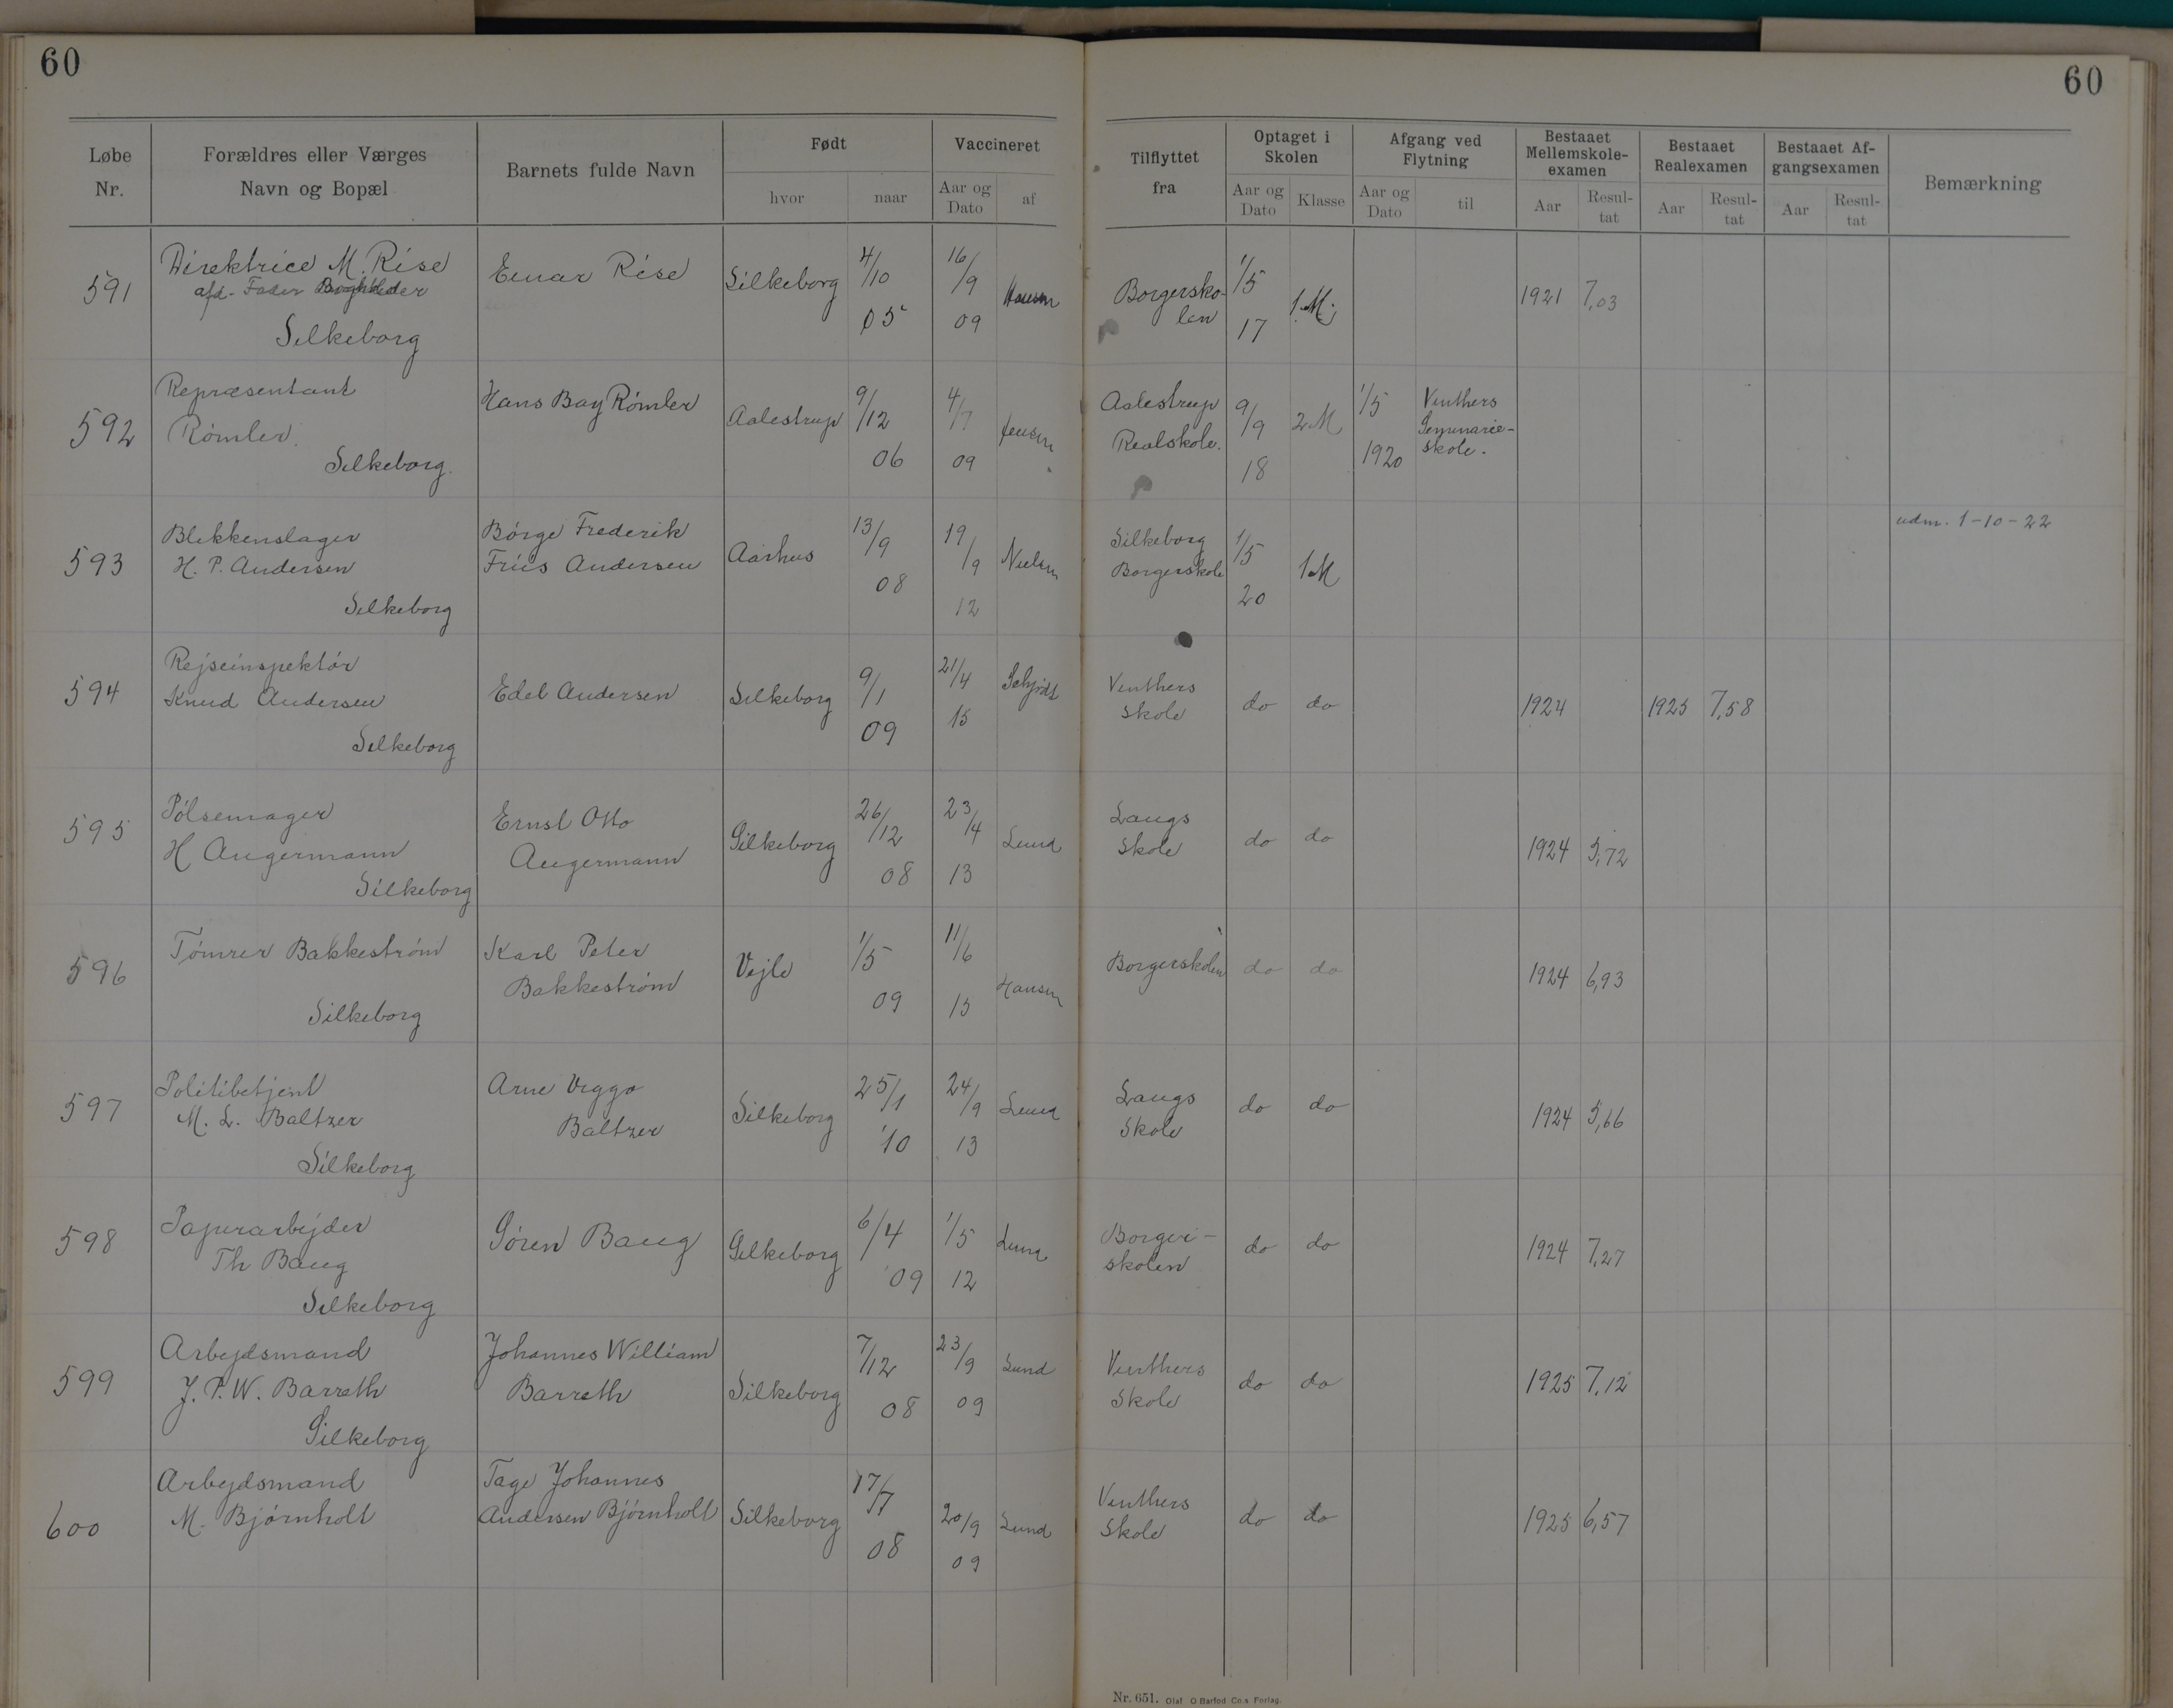 60
60
Løbe Nr.
Forældres eller Værges Navn og Bopæl
Barnets fulde Navn
Født
hvor
naar
Vaccineret
Aar og Dato
af
Tilflyttet fra
Optaget i Skolen
Aar og Dato
Klasse
Afgang ved Flytning
Aar og Dato
til
Bestaaet Mellemskole-examen
Aar
Resul-tat
Bestaaet Realexamen
Aar
Resul-tat
Bestaaet Af-gangsexamen
Aar
Resul-tat
Bemærkning
591
Direktrice M. Rise
afd. Fader Boghholder
Silkeborg
Einar Rise
Silkeborg
4/10 05
16/9 09
Hansen
Borgersko-
len
1/5 17
1 M.
1921 7,03
592
Repræsentant
Rømler.
Silkeborg.
Hans Bay Rømler
Aalestrup
9/12 06
4/7 09
Jensen
Aalestrup
Realskole.
9/9 18
2 M
1/5 1920
Vinthers
Seminarie-
skole.
593
Blikkenslager
H. P. Andersen
Silkeborg
Börge Frederik
Friis Andersen
Aarhus
13/9 08
19/9 12
Nielsen
Silkeborg
Borgerskole
1/5 20
1 M
udm. 1-10-22
594
Rejseinspektör
Knud Andersen
Silkeborg
Edel Andersen
Silkeborg
9/1 09
21/4 15
Schjödt
Vinthers
Skole
do do
1924
1925 7,58
595
Pölsemager
H Angermann
Silkeborg
Ernst Otto
Angermann
Silkeborg
26/12 08
23/4 13
Lund
Langs
Skole
do do
1924 5,72
596
Tömrer Bakkeström
Silkeborg
Karl Peter
Bakkeström
Vejle
1/5 09
11/6 15
Hansen
Borgerskolen
do do
1924 6,93
597
Politibetjent
M. L. Baltzer
Silkeborg
Arne Viggo
Baltzer
Silkeborg
25/1 '10
24/9 13
Lund
Langs
Skole
do do
1924 5,66
598
Papirarbejder
Th Baug
Silkeborg
Sören Baug
Silkeborg
6/4 '09
1/5 12
Lund
Borger-
skolen
do do
1924 7,27
599
Arbejdsmand
J. P. W. Barreth
Silkeborg
Johannes William
Barreth
Silkeborg
7/12 08
23/9 09
Lund
Vinthers
Skole
do do
1925 7,12
600
Arbejdsmand
M. Björnholt
Tage Johannes
Andersen Björnholt
Silkeborg
17/7 08
20/9 09
Lund
Vinthers
Skole
do do
1925 6,57
Nr. 651. Olaf O Barfod Co.s Forlag.